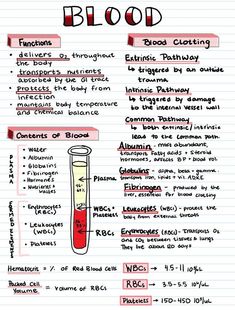 BLOOD
Functions
• delivers O₂ throughout
the body
• transports nutrients
absorbed by the GI tract
• protects the body from
infection
• maintains body temperature
and chemical balance
Blood Clotting
Extrinsic Pathway
↳ triggered by an outside
trauma
Intrinsic Pathway
↳ triggered by damage to
the internal vessel wall
Common Pathway
↳ both extrinsic/intrinsic
lead to the common path.
Contents of Blood
PLASMA
• Water
• Albumin
• Globulins
• Fibrinogen
• Hormones
• Nutrients +
FORMED ELEMENTS
• Erythrocytes
(RBCs)
• Leukocytes
(WBCs)
• Platelets
55%
Plasma
WBCs
Platelets
RBCs
Albumin - most abundant,
transport fatty acids + steroid
hormones, BP + blood vol.
Globulins - alpha, beta + gamma.
transport iron, lipids +
Fibrinogen - produced by the
liver, essential for blood clotting
Leukocytes (WBCs) - protect the
body from external threats
Erythrocytes (RBCs) - Transports O₂
and CO₂ between tissues & lungs
They live about 120 days
Hematocrit = % of Red Blood Cells
Packed Cell Volume = Volume of RBCs
WBCs → 4.5-11
RBCs → 3.5-5.5
Platelets → 150-450